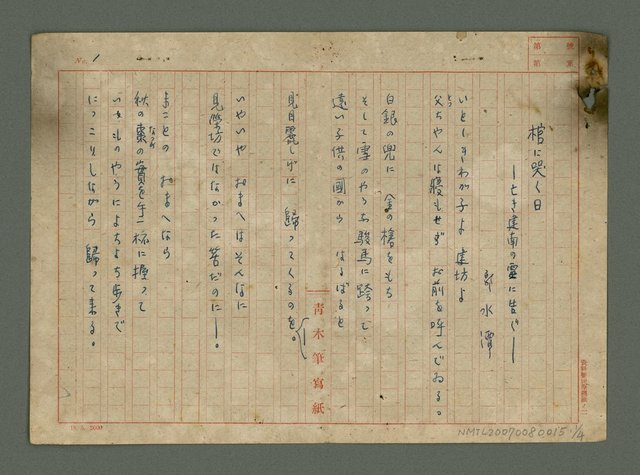 No. 1
第 號
第 業
棺に哭く日
―亡き建南の霊に告ぐ―
郭水潭
いとしきわが子よ 建坊よ
父ちゃんは寝もせず お前を呼んでゐる。
白銀の兜に 金の槍をもち
そして雪のやうな駿馬に跨って
遠い子供の國から はるばると
見目麗しげに 歸ってくるのを。
いやいや おまへはそんなに
見榮坊ではなかった筈だのに―。
まことの おまへなら
秋の棗の實を手一杯に握って
なつめ
いつものやうによちよち歩きで
につこりしながら 歸って来る。
青木筆寫紙
NMTL20070080015 1/4